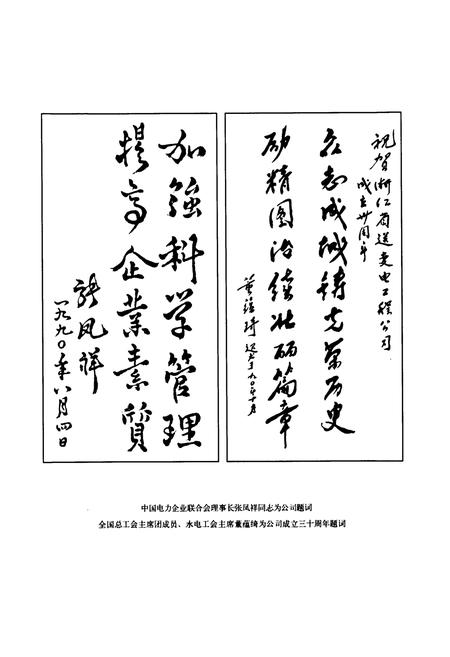 祝贺浙江省送变电工程公司
成立卅周年
众志成城铸光荣历史
励精图治续壮丽篇章
加強科学管理
提高企業素質
张凤祥
一九九〇年八月四日
中国电力企业联合会理事长张凤祥同志为公司题词
全国总工会主席团成员、水电工会主席董蕴绮为公司成立三十周年题词